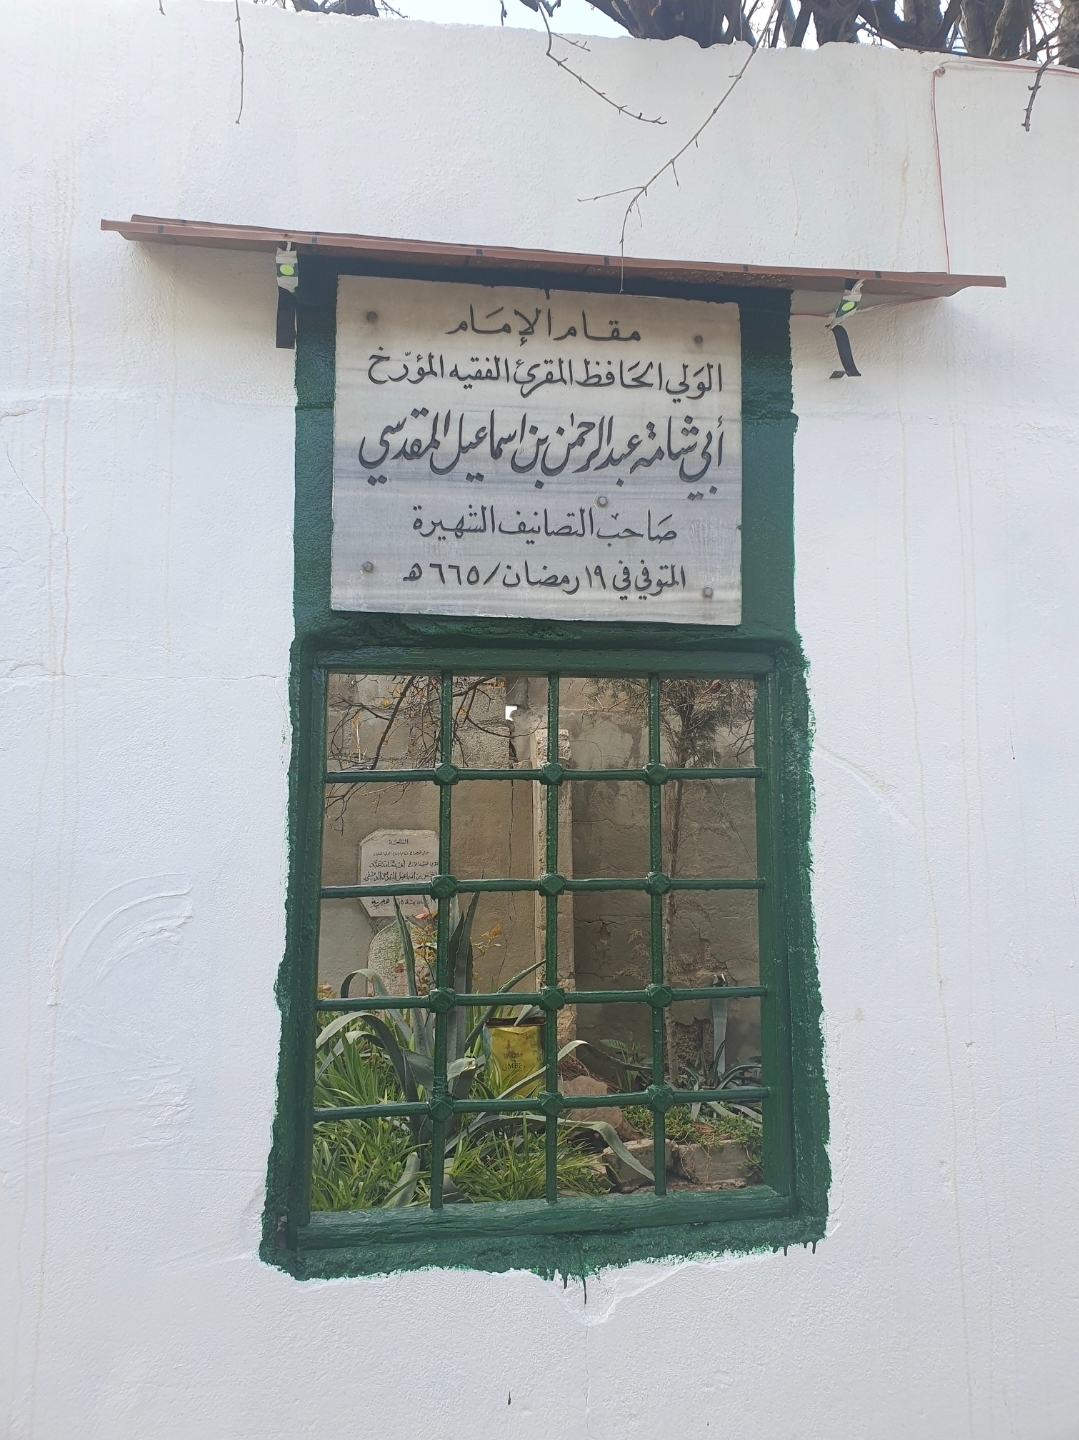 مقام الإمَام
الوَلي الحَافظ المقرئ الفقيه المؤرّخ
أبي شامة عبد الرحمٰن بن اسماعيل المقدسي
صَاحب التصانيف الشهيرة
المتوفي في ١٩ رمضان / ٦٦٥ هـ
الفاتحة